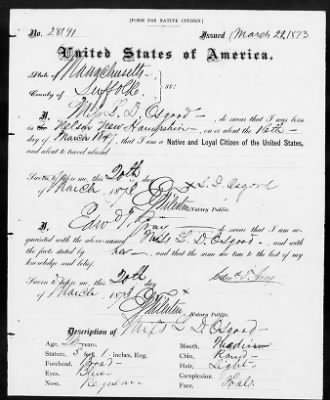 [FORM FOR NATIVE CITIZEN]
No. 28191 Issued March 22, 1873
United States of America.
State of Massachusetts
County of Suffolk ss:
I, Miss L. D. Osgood, do swear that I was born
in Nelson New Hampshire, on or about the 16th
day of March, that I am a Native and Loyal Citizen of the United States,
and about to travel abroad
L. D. Osgood
Sworn to before me, this 20th
day of March 1873
Notary Public.
I, Edw'd T., do swear that I am ac-
quainted with the above-named Miss L. D. Osgood, and with
the facts stated by her, and that the same are true to the best of my
knowledge and belief.
Sworn to before me, this 20th
day of March 1873
Notary Public.
Description of Miss L. D. Osgood
Age, years. Mouth, Medium
Stature, 5 feet 1 inches, Eng. Chin, Round
Forehead, Broad Hair, Light
Eyes, Blue Complexion,
Nose, Regular Face, Oval